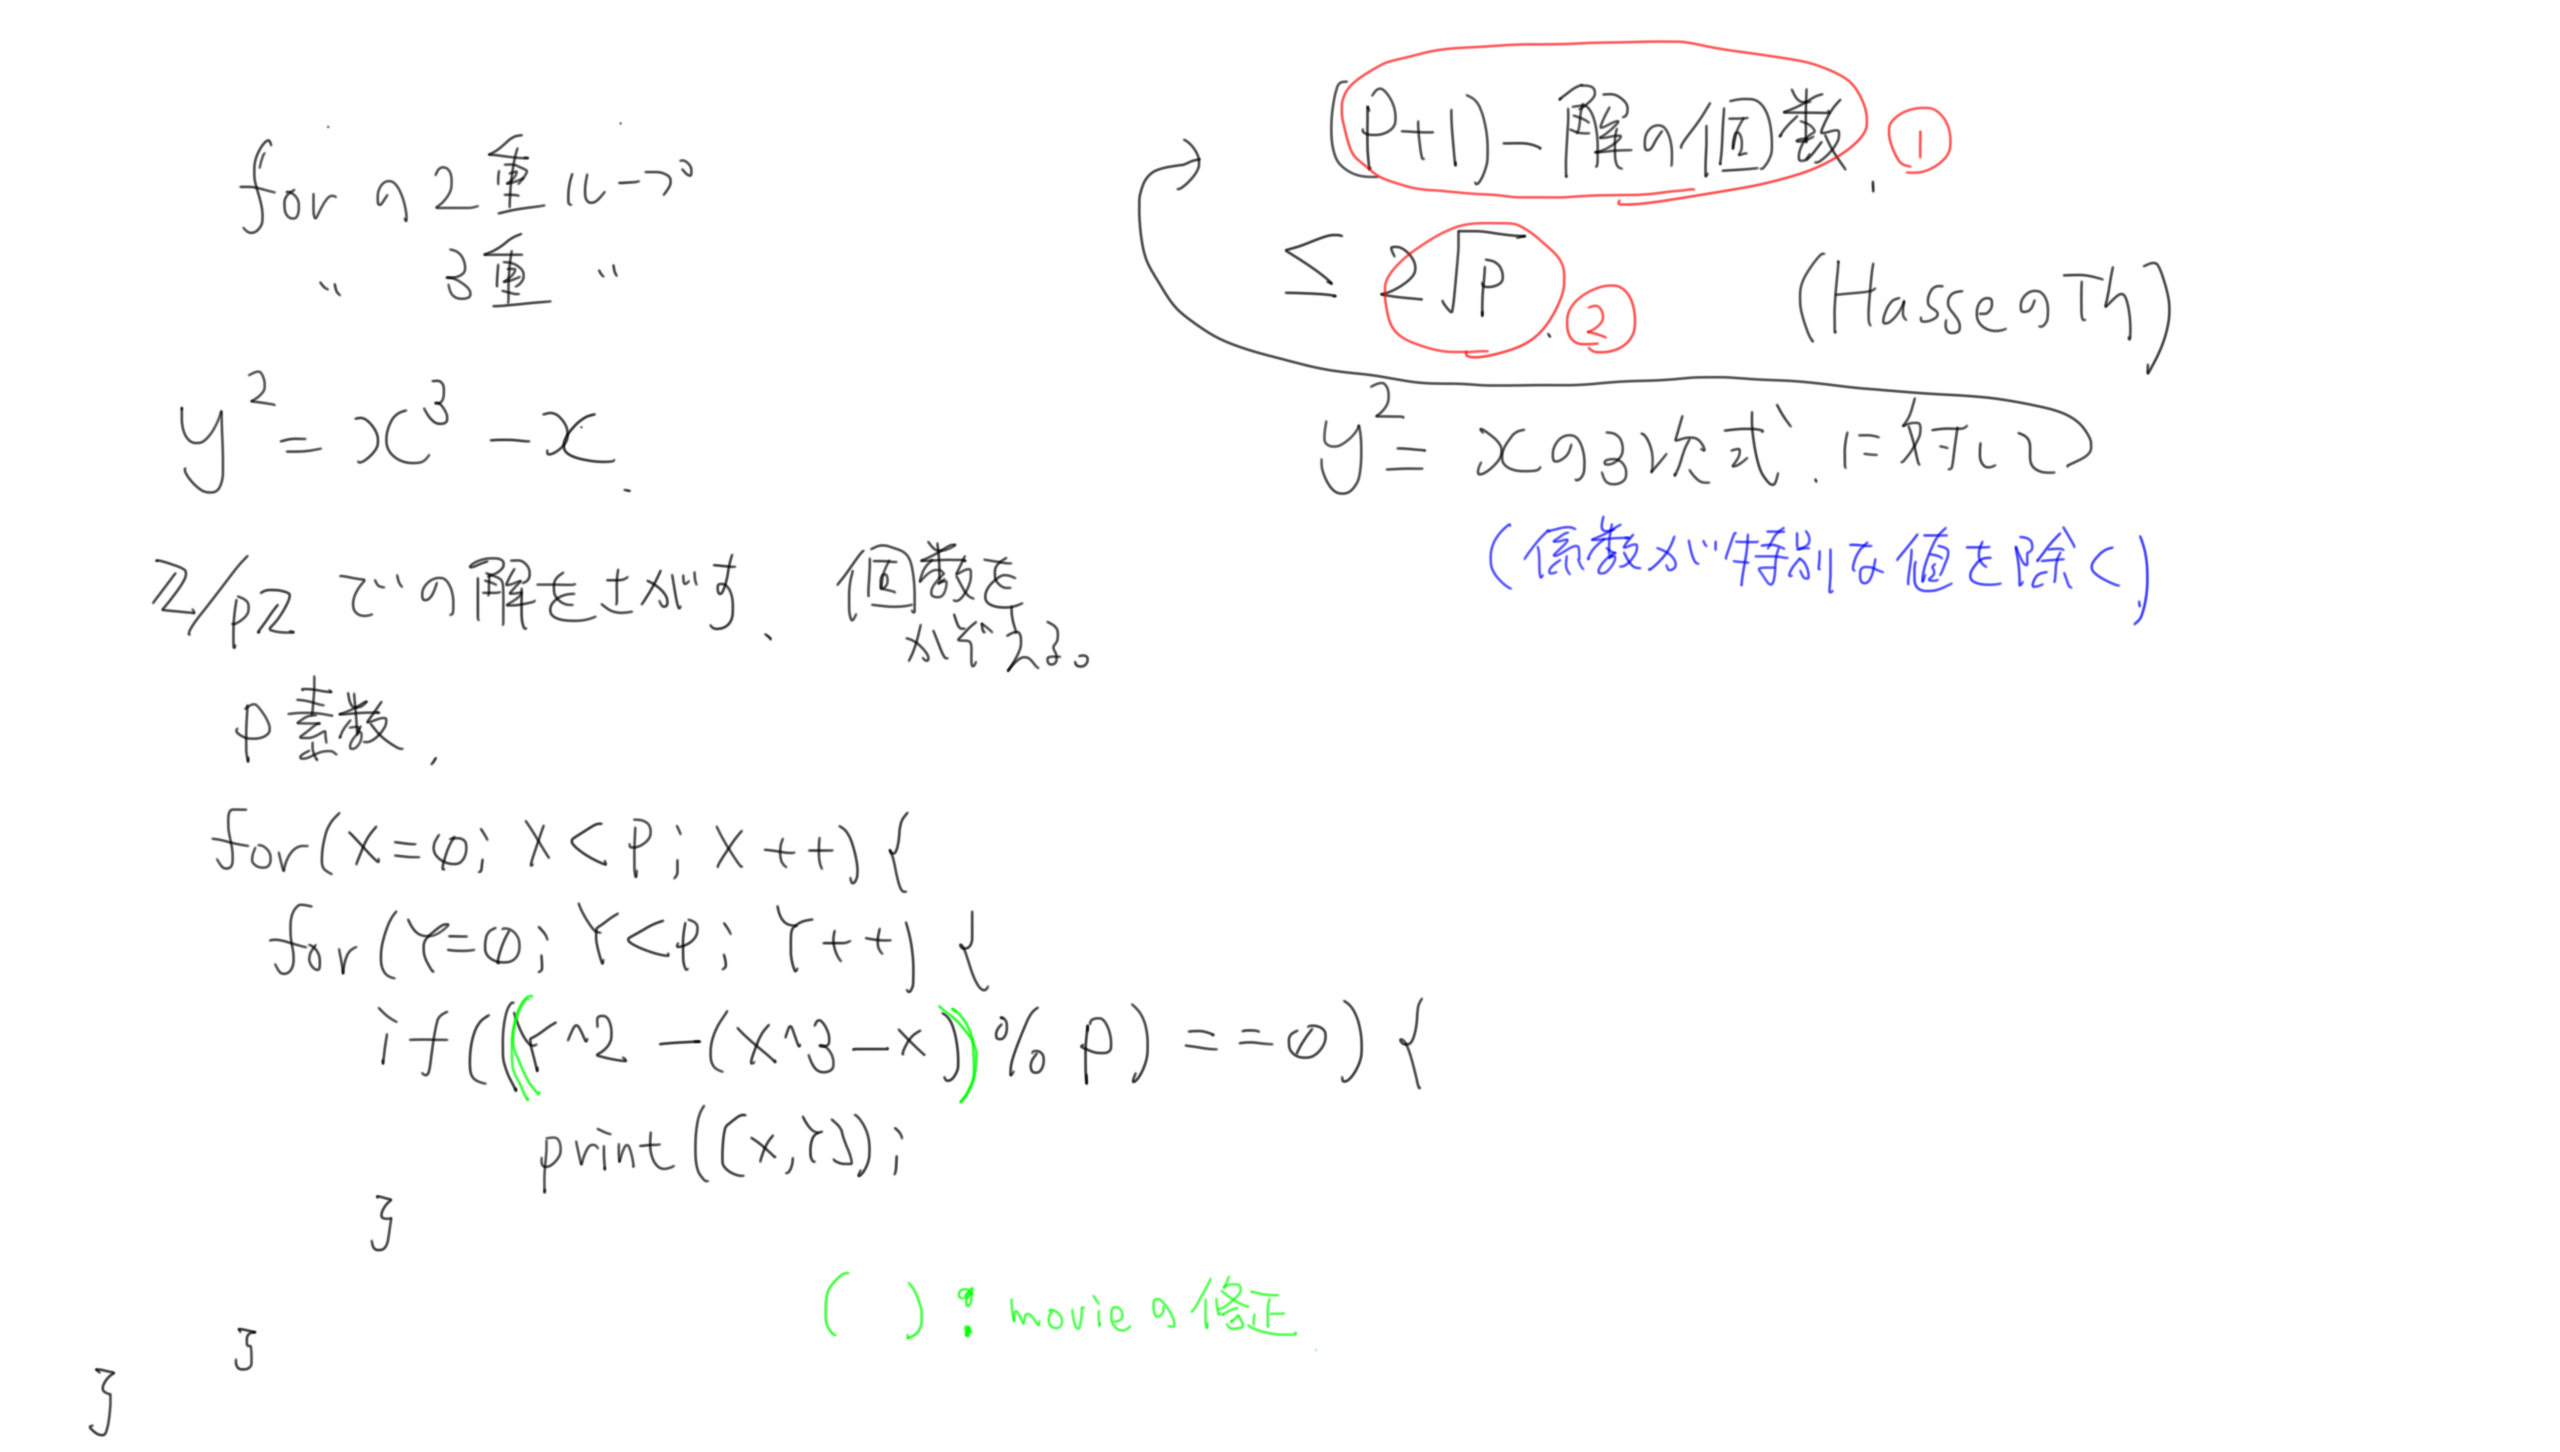 forの2重ループ
〃 3重 〃
y² = x³ - x.
ℤ/pℤ での解をさがす、個数を
かぞえる。
p素数.
for(X=0; X<P; X++){
for(Y=0; Y<P; Y++){
if(((Y^2-(X^3-X))%P)==0){
print([X,Y]);
}
}
}
( ) : movieの修正
(P+1)-解の個数. ①
≤ 2√p. ② (HasseのTh)
y² = xの3次式.に対して
(係数が特別な値を除く)